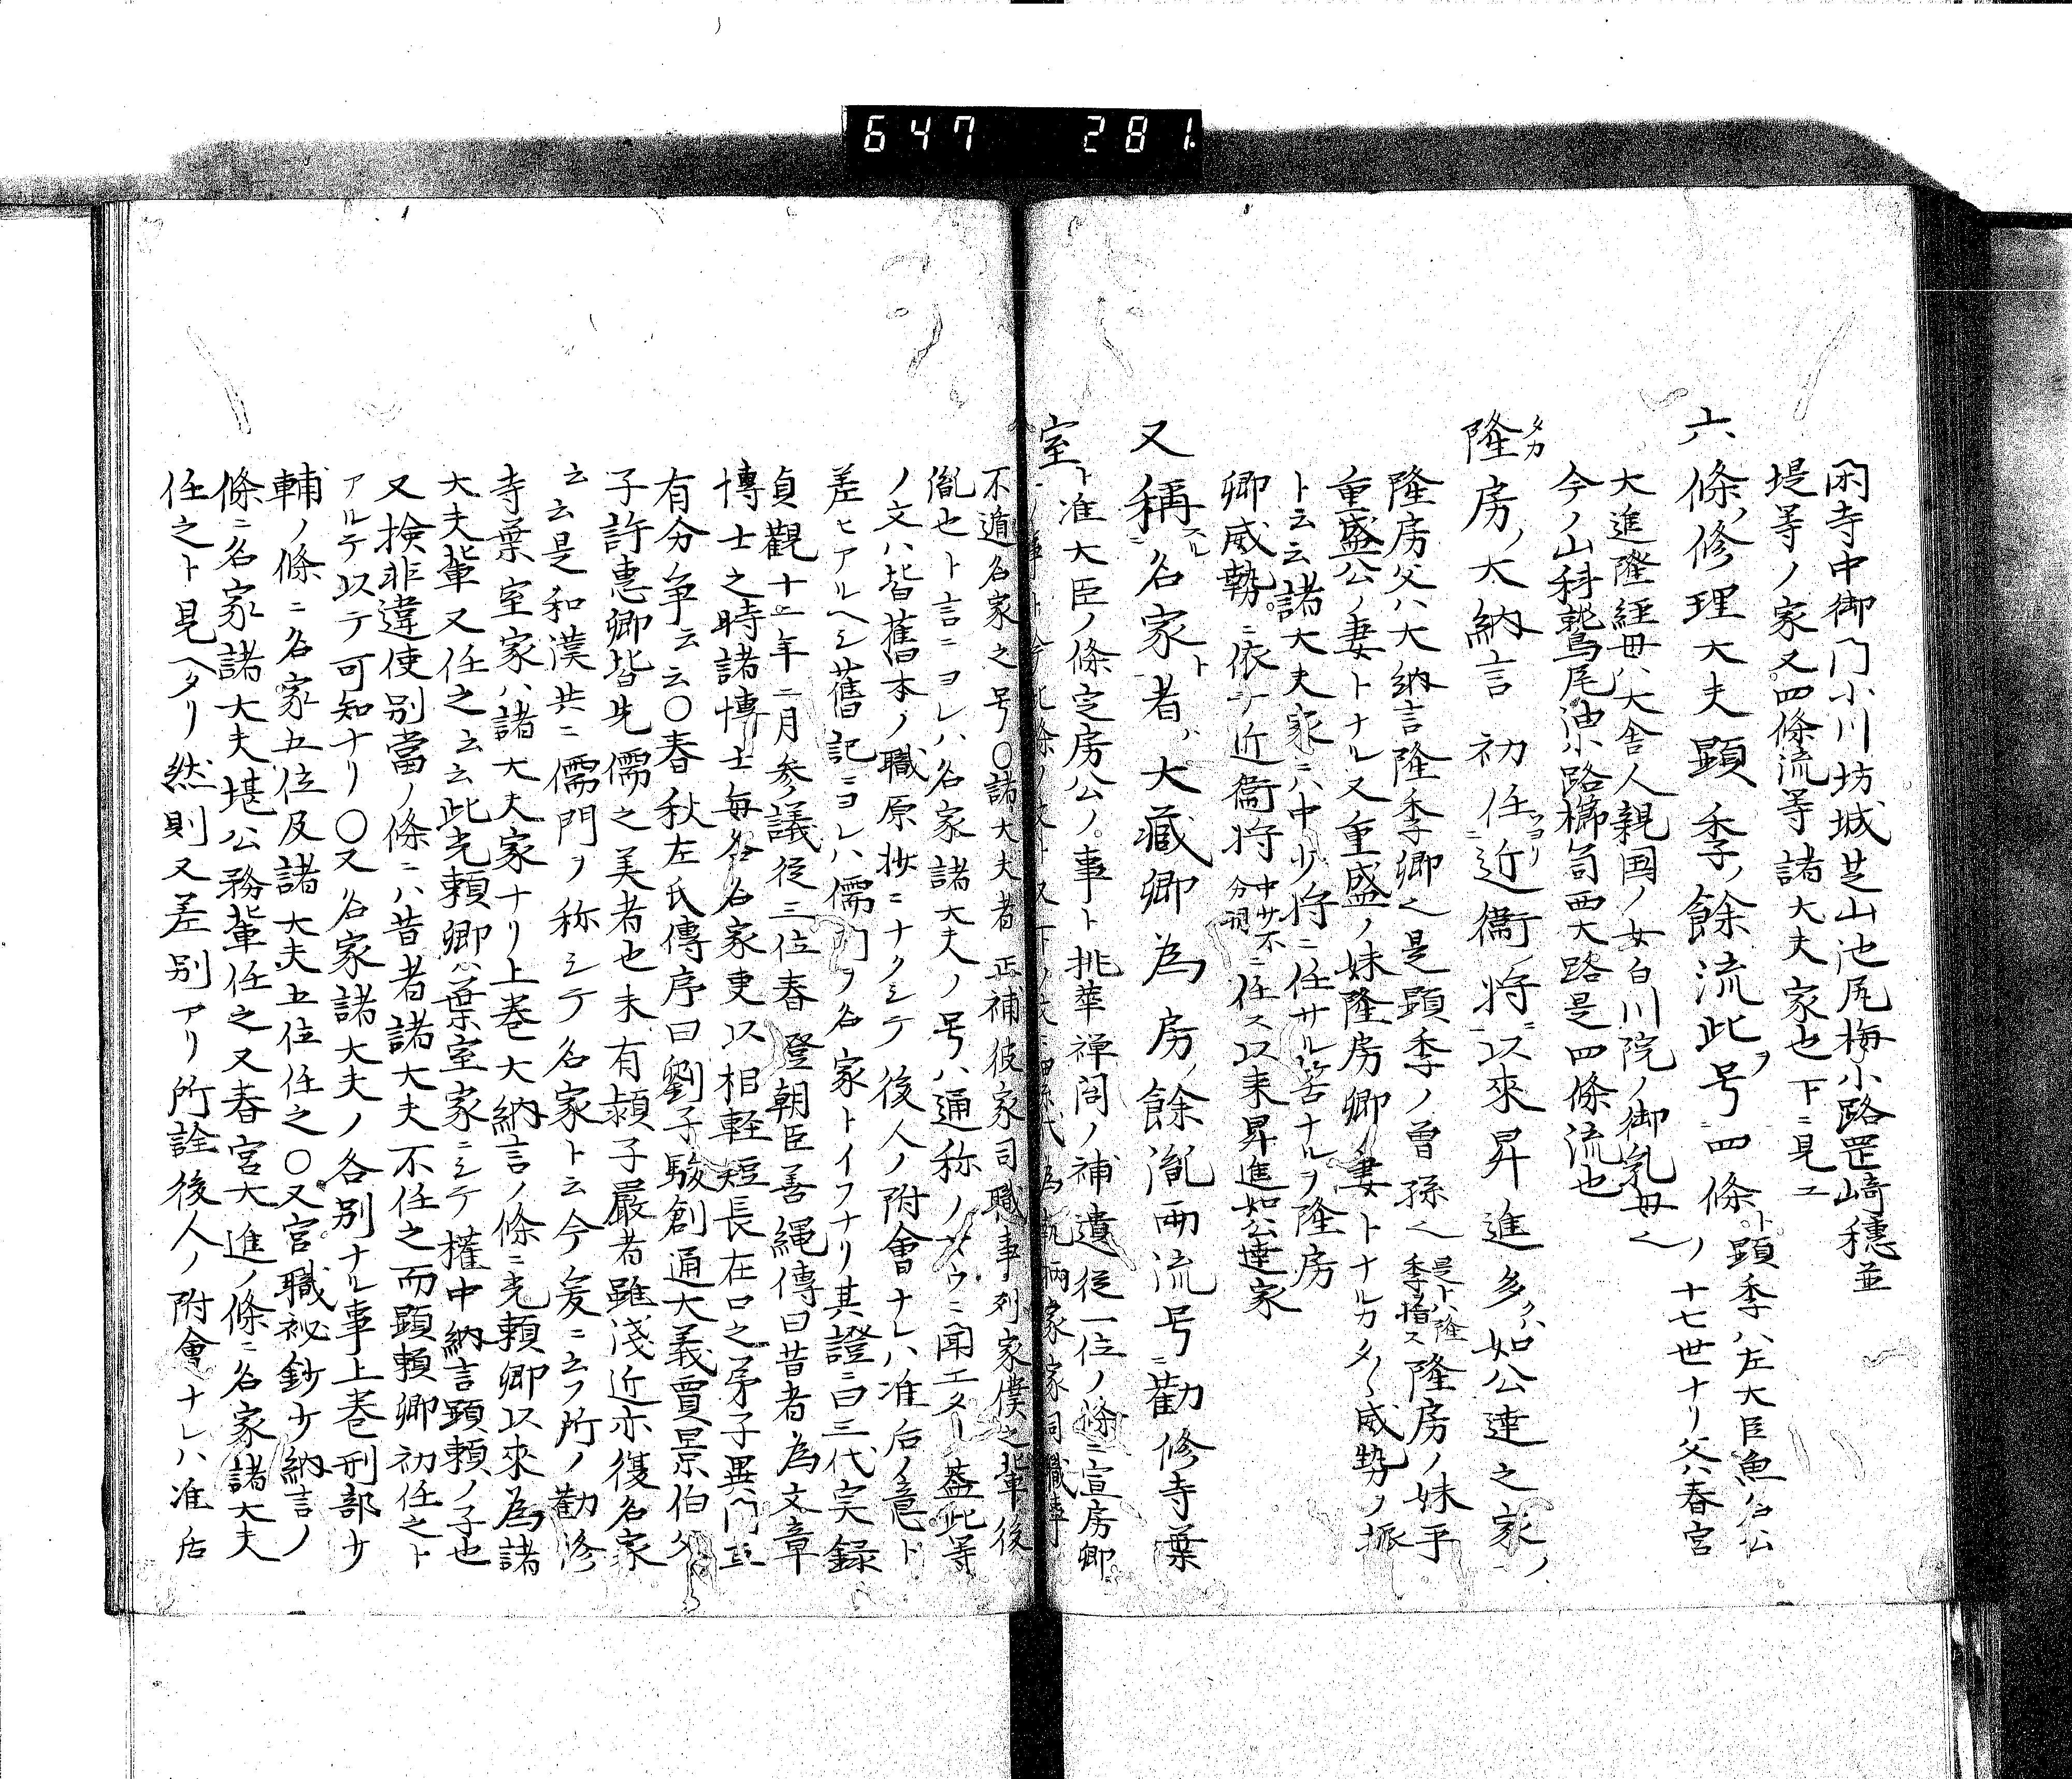 647 281
閑寺中御門小川坊城芝山池尻梅小路罡﨑穩並
堤等ノ家又四條流等諸大夫家也下ニ見エ
六條ノ修理大夫顕季ノ餘流此号ヲ四條ト顕季ハ左大臣魚名公ノ十七世ナリ父ハ春宮
大進隆経母ハ大舎人親国ノ女白川院ノ御乳母也
今ノ山科鷲尾油小路櫛笥西大路是四條流也
隆房ノ大納言初任近衞将以來昇進多ク如公達之家ノ
隆房父ハ大納言隆季卿也是顕季ノ曽孫也是トハ隆季ヲ指ス隆房ノ妹平
重盛公ノ妻トナル又重盛ノ妹隆房卿ノ妻トナルカタ〱威勢ノ振
ト云云諸大夫家ニハ中少将ニ任サル筈ナルヲ隆房
卿威勢ニ依テ近衞将中少不分明ニ任ス以来昇進如公達家
又稱スル名家ト者ハ大藏卿為房ノ餘胤両流号ニ勸修寺葉
室ト准大臣ノ條定房公ノ事ト桃華禅閤ノ補遺従一位ノ條ニ宣房卿
不遁名家之号〇諸大夫者正補彼家司職事列家僕之輩後
胤也ト言ニヨレハ名家諸大夫ノ号ハ通称ノヤウニ聞エタリ蓋此等
ノ文ハ皆舊本ノ職原抄ニナクシテ後人ノ附會ナレハ准后ノ意ト
差ヒアルヘシ舊記ニヨレハ儒門ヲ名家トイフナリ其證ニ曰三代実録
貞觀十二年二月参議従三位春登朝臣善縄傳曰昔者為文章
博士之時諸博士毎各名家更以相軽短長在口之弟子異門互
有分争云云〇春秋左氏傳序曰劉子駿創通大義賈景伯父
子許惠卿皆先儒之美者也末有頴子嚴者雖淺近亦復名家
云云是和漢共ニ儒門ノ称シテ名家ト云今爰ニ云フ所ノ勸修
寺葉室家ハ諸大夫家ナリ上巻大納言ノ條ニ光頼卿以來為諸
大夫輩又任之云云此光頼卿ハ葉室家ニシテ權中納言顕頼ノ子也
又検非違使別當ノ條ニハ昔者諸大夫不任之而顕頼卿初任之ト
アルテ以テ可知ナリ〇又名家諸大夫ノ各別ナル事上巻刑部少
輔ノ條ニ名家五位及諸大夫五位任之〇又宮職祕鈔少納言ノ
條ニ名家諸大夫堪公務輩任之又春宮大進ノ條ニ名家諸大夫
任之ト見ヘタリ然則又差別アリ所詮後人ノ附會ナレハ准后